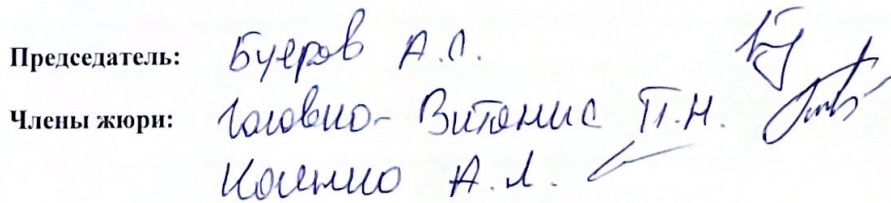 Председатель: Буеров А.Л.
Члены жюри: Головко-Витанис П.Н.
А.Л.